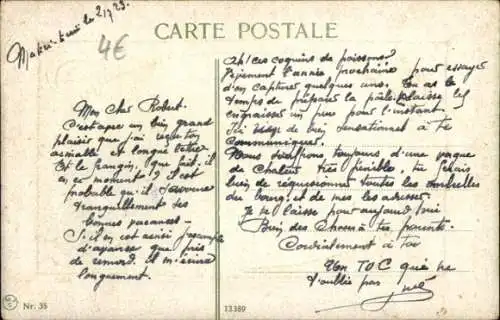 CARTE POSTALE
le 2/7 23.
4€
Mon cher Robert.
C'est avec un bien grand
plaisir que j'ai reçu ton
aimable et longue lettre
Et le frangin, que fait-il
en ce moment? Il est
probable qu'il savoure
tranquillement ses
bonnes vacances -
S'il en est ainsi
d'avance que pas
de remord, il m'écrive
longuement.
Ah! ces coquins de poissons
l'année prochaine pour essayer
d'en capturer quelques uns. Tu as le
temps de préparer la pâte, laisse les
engraisser un peu pour l'instant.
Ici rien de bien sensationnel à te
communiquer.
Nous toujours d'une vague
de chaleur très pénible, tu ferais
bien de réquisitionner toutes les ombrelles
du bourg, et de me les adresser
Je te laisse pour aujourd'hui
Bien des choses à tes parents.
Cordialement à toi
Ton TOC qui ne
t'oublie pas
Nr. 38
13389